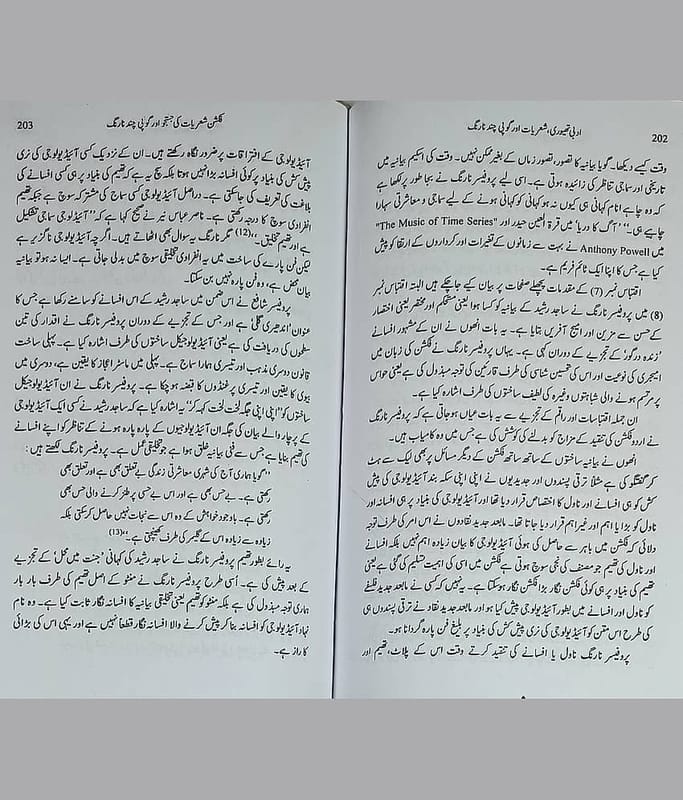 202
ادبی تھیوری، شعریات اور گوپی چند نارنگ
وقت کیسے دیکھا۔ گویا بیانیہ کا تصور، تصور زماں کے بغیر ممکن نہیں۔ وقت کی اسکیم بیانیہ میں
تاریخی اور سماجی تناظر کی زائیدہ ہوتی ہے۔ اسی لیے پروفیسر نارنگ نے بجا طور پر لکھا ہے
کہ وہ چاہے انام کہانی ہی کیوں نہ ہو کہانی کو کہانی ہونے کے لیے سماجی و معاشرتی سہارا
چاہیے ہی۔‘‘ ’آگ کا دریا‘ میں قرۃ العین حیدر اور "The Music of Time Series"
میں Anthony Powell نے بہت سے زمانوں کے تغیرات اور کرداروں کے ارتقا کو پیش
کیا ہے جس کا اپنا ایک ٹائم فریم ہے۔
اقتباس نمبر (7) کے مقدمات پچھلے صفحات پر بیان کیے جا چکے ہیں البتہ اقتباس نمبر
(8) میں پروفیسر نارنگ نے ساجد رشید کے بیانیہ کو کسا ہوا یعنی مستحکم اور مختصر یعنی اختصار
کے حسن سے مزین اور امیج آفریں بتایا ہے۔ یہ بات انھوں نے ان کے مشہور افسانے
’زندہ درگور‘ کے تجزیے کے دوران کہی ہے۔ یہاں پروفیسر نارنگ نے فکشن کی زبان میں
امیجری کی نوعیت اور اس کی تحسین شناسی کی طرف قارئین کی توجہ مبذول کی ہے یعنی حواس
پر مرتسم ہونے والی شباہتوں وغیرہ کی لطیف ساختوں کی طرف اشارہ کیا ہے۔
ان جملہ اقتباسات اور راقم کے تجزیے سے یہ بات عیاں ہو جاتی ہے کہ پروفیسر نارنگ
نے اردو فکشن کی تنقید کے مزاج کو بدلنے کی کوشش کی ہے جس میں وہ کامیاب ہیں۔
انھوں نے بیانیہ ساختوں کے ساتھ ساتھ فکشن کے دیگر مسائل پر بھی لیک سے ہٹ
کر گفتگو کی ہے مثلاً ترقی پسندوں اور جدیدیوں نے اپنی اپنی سکہ بند آئیڈیولوجی کی پیش
کش کو ہی افسانے اور ناول کا اختصاص قرار دیا تھا اور آئیڈیولوجی کی بنیاد پر ہی افسانہ اور
ناول کو بڑا یا اہم اور غیر اہم قرار دیا جاتا تھا۔ مابعد جدید نقادوں نے اس امر کی طرف توجہ
دلائی کہ فکشن میں باہر سے حاصل کی ہوئی آئیڈیولوجی کا بیان زیادہ اہم نہیں بلکہ افسانے
اور ناول کی تھیم جو مصنف کی نجی سوچ ہوتی ہے فکشن میں اسی کی اہمیت تسلیم کی گئی ہے یعنی
تھیم کی بنیاد پر ہی کوئی فکشن نگار بڑا فکشن نگار ہو سکتا ہے۔ یہ نہیں کہ کسی نے مابعد جدید فلسفے
کو ناول اور افسانے میں بطور آئیڈیولوجی پیش کیا ہو اور مابعد جدید نقاد نے ترقی پسندوں ہی
کی طرح اس متن کو آئیڈیولوجی کی نری پیش کش کی بنیاد پر بلیغ فن پارہ گردانا ہو۔
پروفیسر نارنگ ناول یا افسانے کی تنقید کرتے وقت اس کے پلاٹ، تھیم اور
203
فکشن شعریات کی جستجو اور گوپی چند نارنگ
آئیڈیولوجی کے افتراقات پر ضرور نگاہ رکھتے ہیں۔ ان کے نزدیک کسی آئیڈیولوجی کی نری
پیش کش کی بنیاد پر کوئی افسانہ بڑا نہیں ہوتا بلکہ سچ یہ ہے کہ تھیم کی بنیاد پر ہی کسی افسانے کی
بلاغت کی تعریف کی جا سکتی ہے۔ دراصل آئیڈیولوجی کسی سماج کی مشترکہ سوچ ہے جبکہ تھیم
انفرادی سوچ کا درجہ رکھتی ہے۔ ناصر عباس نیر نے صحیح کہا ہے کہ ’’آئیڈیولوجی سماجی تشکیل
ہے اور تھیم تخلیقی۔‘‘(12) مگر نارنگ یہ سوال بھی اٹھاتے ہیں۔ اگرچہ آئیڈیولوجی ناگزیر ہے
لیکن فن پارے کی ساخت میں یہ انفرادی تخلیقی سوچ میں بدلی جاتی ہے۔ ایسا نہ ہو تو بیانیہ
بیان محض ہے، وہ فن پارہ نہیں بن سکتا۔
پروفیسر شافع نے اس ضمن میں ساجد رشید کے اس افسانے کو سامنے رکھا ہے جس کا
عنوان ’اندھیری گلی‘ ہے اور جس کے تجزیے کے دوران پروفیسر نارنگ نے اقدار کی تین
سطحوں کی دریافت کی ہے یعنی آئیڈیولوجیکل ساختوں کی طرف اشارہ کیا ہے۔ پہلی ساخت
قانون دوسری مذہب اور تیسری ہمارا سماج ہے۔ پہلی میں ماسٹر اعجاز کا یقین ہے، دوسری میں
بیوی کا یقین اور تیسری پر غنڈوں کا قبضہ ہو چکا ہے۔ پروفیسر نارنگ نے ان آئیڈیولوجیکل
ساختوں کو ’’اپنی اپنی جگہ لخت لخت کہہ کر‘‘ یہ اشارہ کیا ہے کہ ساجد رشید نے کسی ایک آئیڈیولوجی
کے پرچار والے بیان کی جگہ ان آئیڈیولوجیوں کے پارہ پارہ ہونے کے تناظر کو اپنے افسانے
کی تھیم بنایا ہے جس سے فنی بیانیہ خلق ہوا ہے جو تخلیقی عمل ہے۔ پروفیسر نارنگ لکھتے ہیں:
’’گویا ہماری آج کی شہری معاشرتی زندگی بے تعلق بھی ہے اور تعلق بھی
رکھتی ہے۔ بے حس بھی ہے اور اس بے حسی پر طنز کرنے والی حس بھی
رکھتی ہے۔ باوجود خواہش کے وہ اس سے نجات نہیں حاصل کر سکتی بلکہ
زیادہ سے زیادہ اس کے گلیمر کی طرف کھنچتی ہے۔‘‘(13)
یہ رائے بطور تھیم پروفیسر نارنگ نے ساجد رشید کی کہانی ’جنت میں محل‘ کے تجزیے
کے بعد پیش کی ہے۔ اُسی طرح پروفیسر نارنگ نے منٹو کے اصل تھیم کی طرف بار بار
ہماری توجہ مبذول کی ہے بلکہ منٹو کو تھیم یعنی تخلیقی بیانیہ کا افسانہ نگار ثابت کیا ہے۔ وہ نام
نہاد آئیڈیولوجی کو افسانہ بنا کر پیش کرنے والا افسانہ نگار قطعاً نہیں ہے اور یہی اس کی بڑائی
کا راز ہے۔